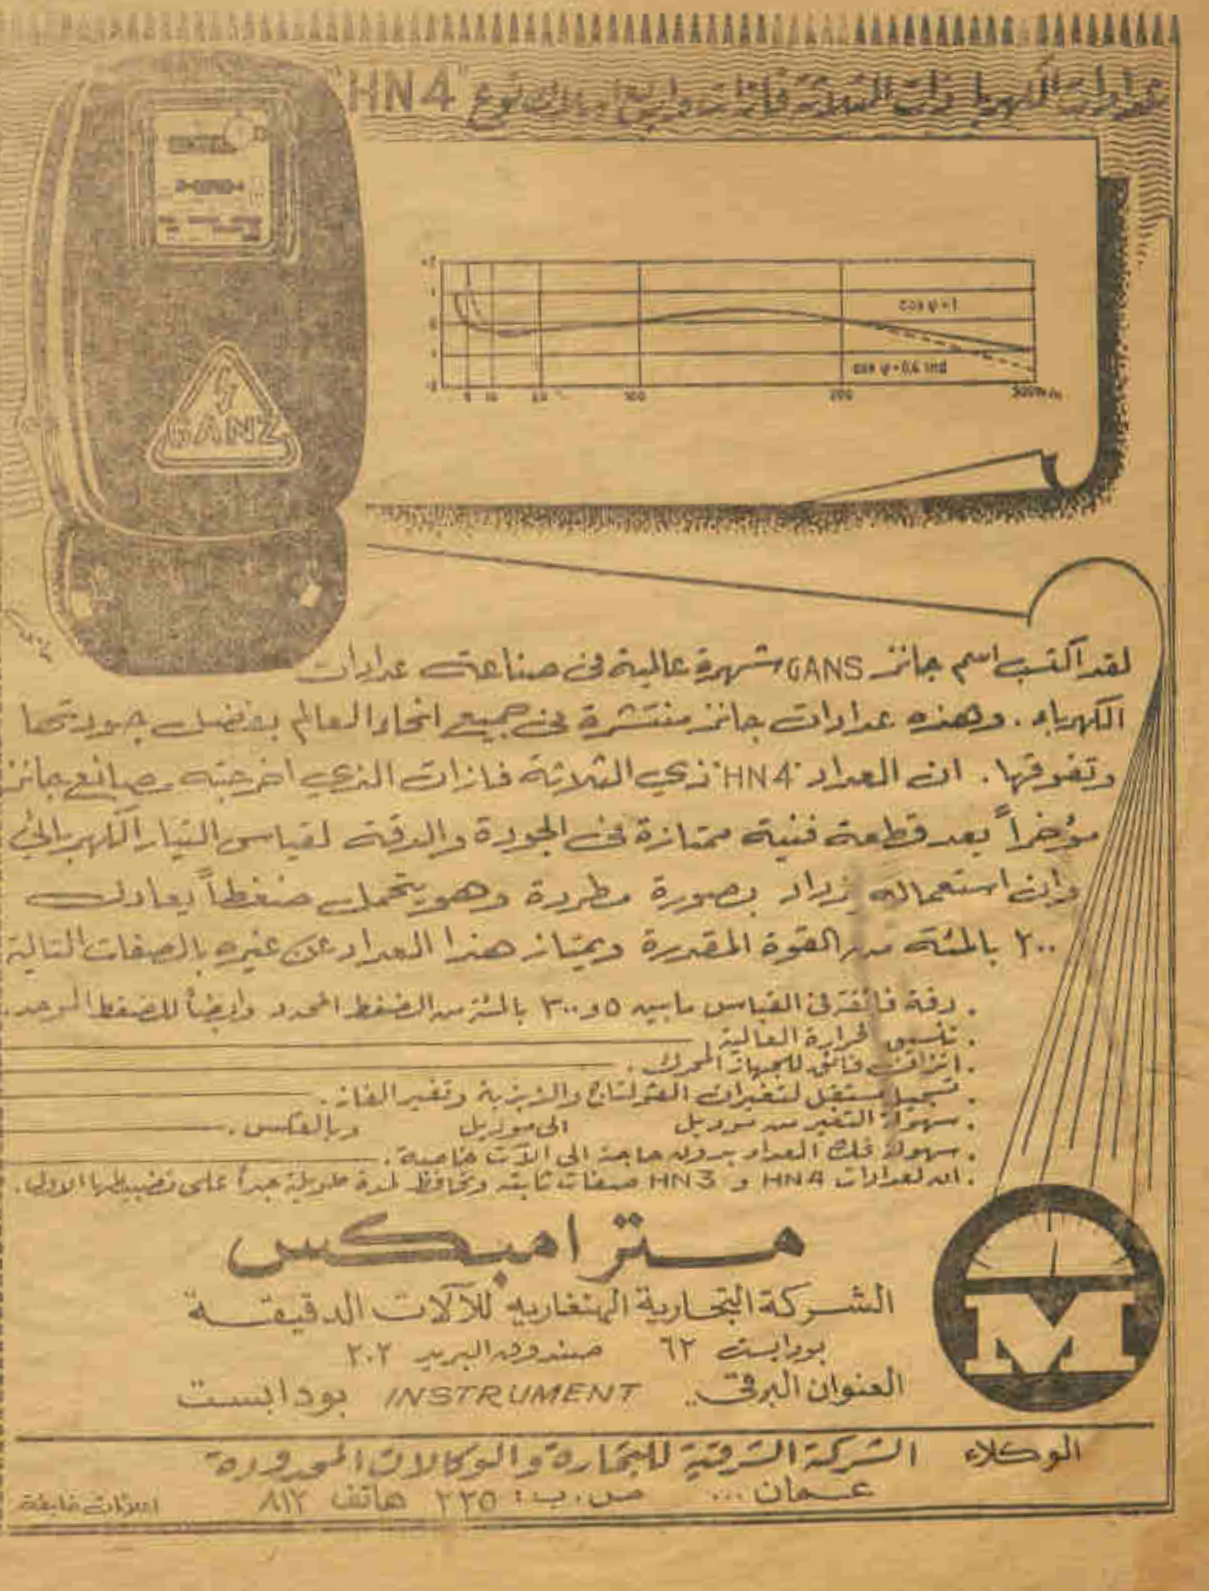 عدادات الكهربا ذات الثلاثة فازات واربع اسلاك نوع "HN4"
+2
1
0
1
-2
cos φ = 1
cos φ = 0,6 ind
5 10 50 100 200 300% In
GANZ
لقد اكتسب اسم جانز GANS شهرة عالية في صناعة عدادات
الكهرباء . وهذه عدادات جانز منتشرة في جميع انحاء العالم بفضل جودتها
وتفوقها . ان العداد "HN4" ذي الثلاثة فازات الذي اخرجته مصانع جانز
مؤخراً يعد قطعة فنية ممتازة في الجودة والدقة لقياس التيار الكهربائي
وان استعماله يزداد بصورة مطردة وهو يتحمل ضغطاً يعادل
٢٠٠ بالمئة من القوة المقدرة ويمتاز هذا العداد عن غيره بالصفات التالية
. دقة فائقة في القياس ما بين ٥ و ٣٠٠ بالمئة من الضغط المحدد وايضاً للضغط الموحد.
. تنسيق الحرارة العالية
. اتزان فائق للجهاز المحرك .
. تسجيل مستقل لتغيرات الفولتاج والذبذبة وتغير الفاز .
. سهولة التغير من موديل الى موديل وبالعكس .
. سهولة فك العداد بدون حاجة الى الآت خاصة .
. ان لعدادات HN4 و HN3 صفات ثابتة وتحافظ لمدة طويلة جداً على تضبيطها الاولي .
مترامبكس
الشركة التجارية الهنغارية للآلات الدقيقة
بودابست ٦٢ صندوق البريد ٢٠٢
العنوان البرقي .. INSTRUMENT بودابست
M
الوكلاء الشركة الشرقية للتجارة والوكالات المحدودة
عمان ... ص.ب: ٢٢٥ هاتف ٨١٢